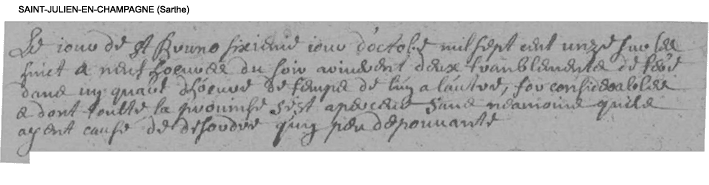 SAINT-JULIEN-EN-CHAMPAGNE (Sarthe)
Le jour de St Bruno sixieme jour d'octobe mil sept cent unze sur les
huict a neuf heures du soir arriverent deux tramblements de terre
dans un quart d'heure de temps de l'un a l'autre, for considerables
e dont toutte la province s'est aperceue sans neamoins quils
ayent causé de desordre qu'un peu depouvante